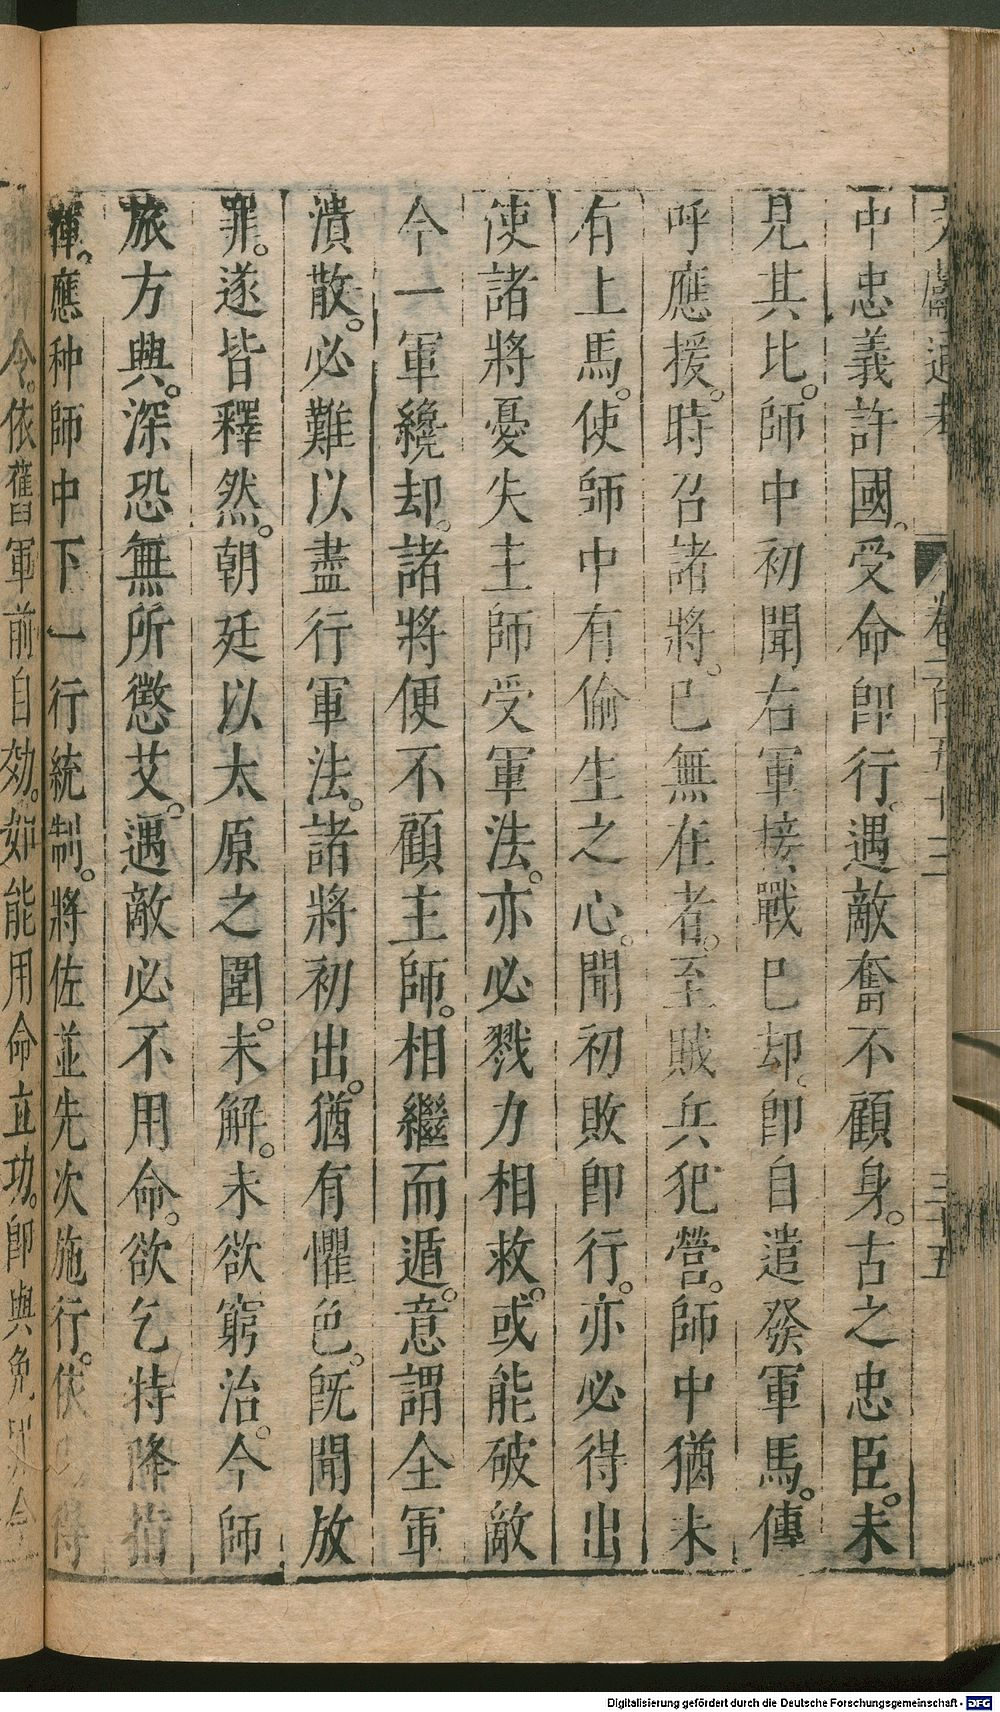 中忠義許國。受命即行。遇敵奮不顧身。古之忠臣。未
見其比。師中初聞右軍接戰已却。即自遣發軍馬。傳
呼應援。時召諸將。已無在者。至賊兵犯營。師中猶未
有上馬。使師中有偷生之心。聞初敗即行。亦必得出
使諸將憂失主師受軍法。亦必戮力相救。或能破敵
今一軍纔却。諸將便不顧主師。相繼而遁。意謂全軍
潰散。必難以盡行軍法。諸將初出。猶有懼色。旣聞放
罪。遂皆釋然。朝廷以太原之圍。未解。未欲窮治。今師
旅方興。深恐無所懲艾。遇敵必不用命。欲乞特降指
揮。應种師中下一行統制。將佐並先次施行。依
令。依舊軍前自効。如能用命立功。即與免
Digitalisierung gefördert durch die Deutsche Forschungsgemeinschaft - DFG